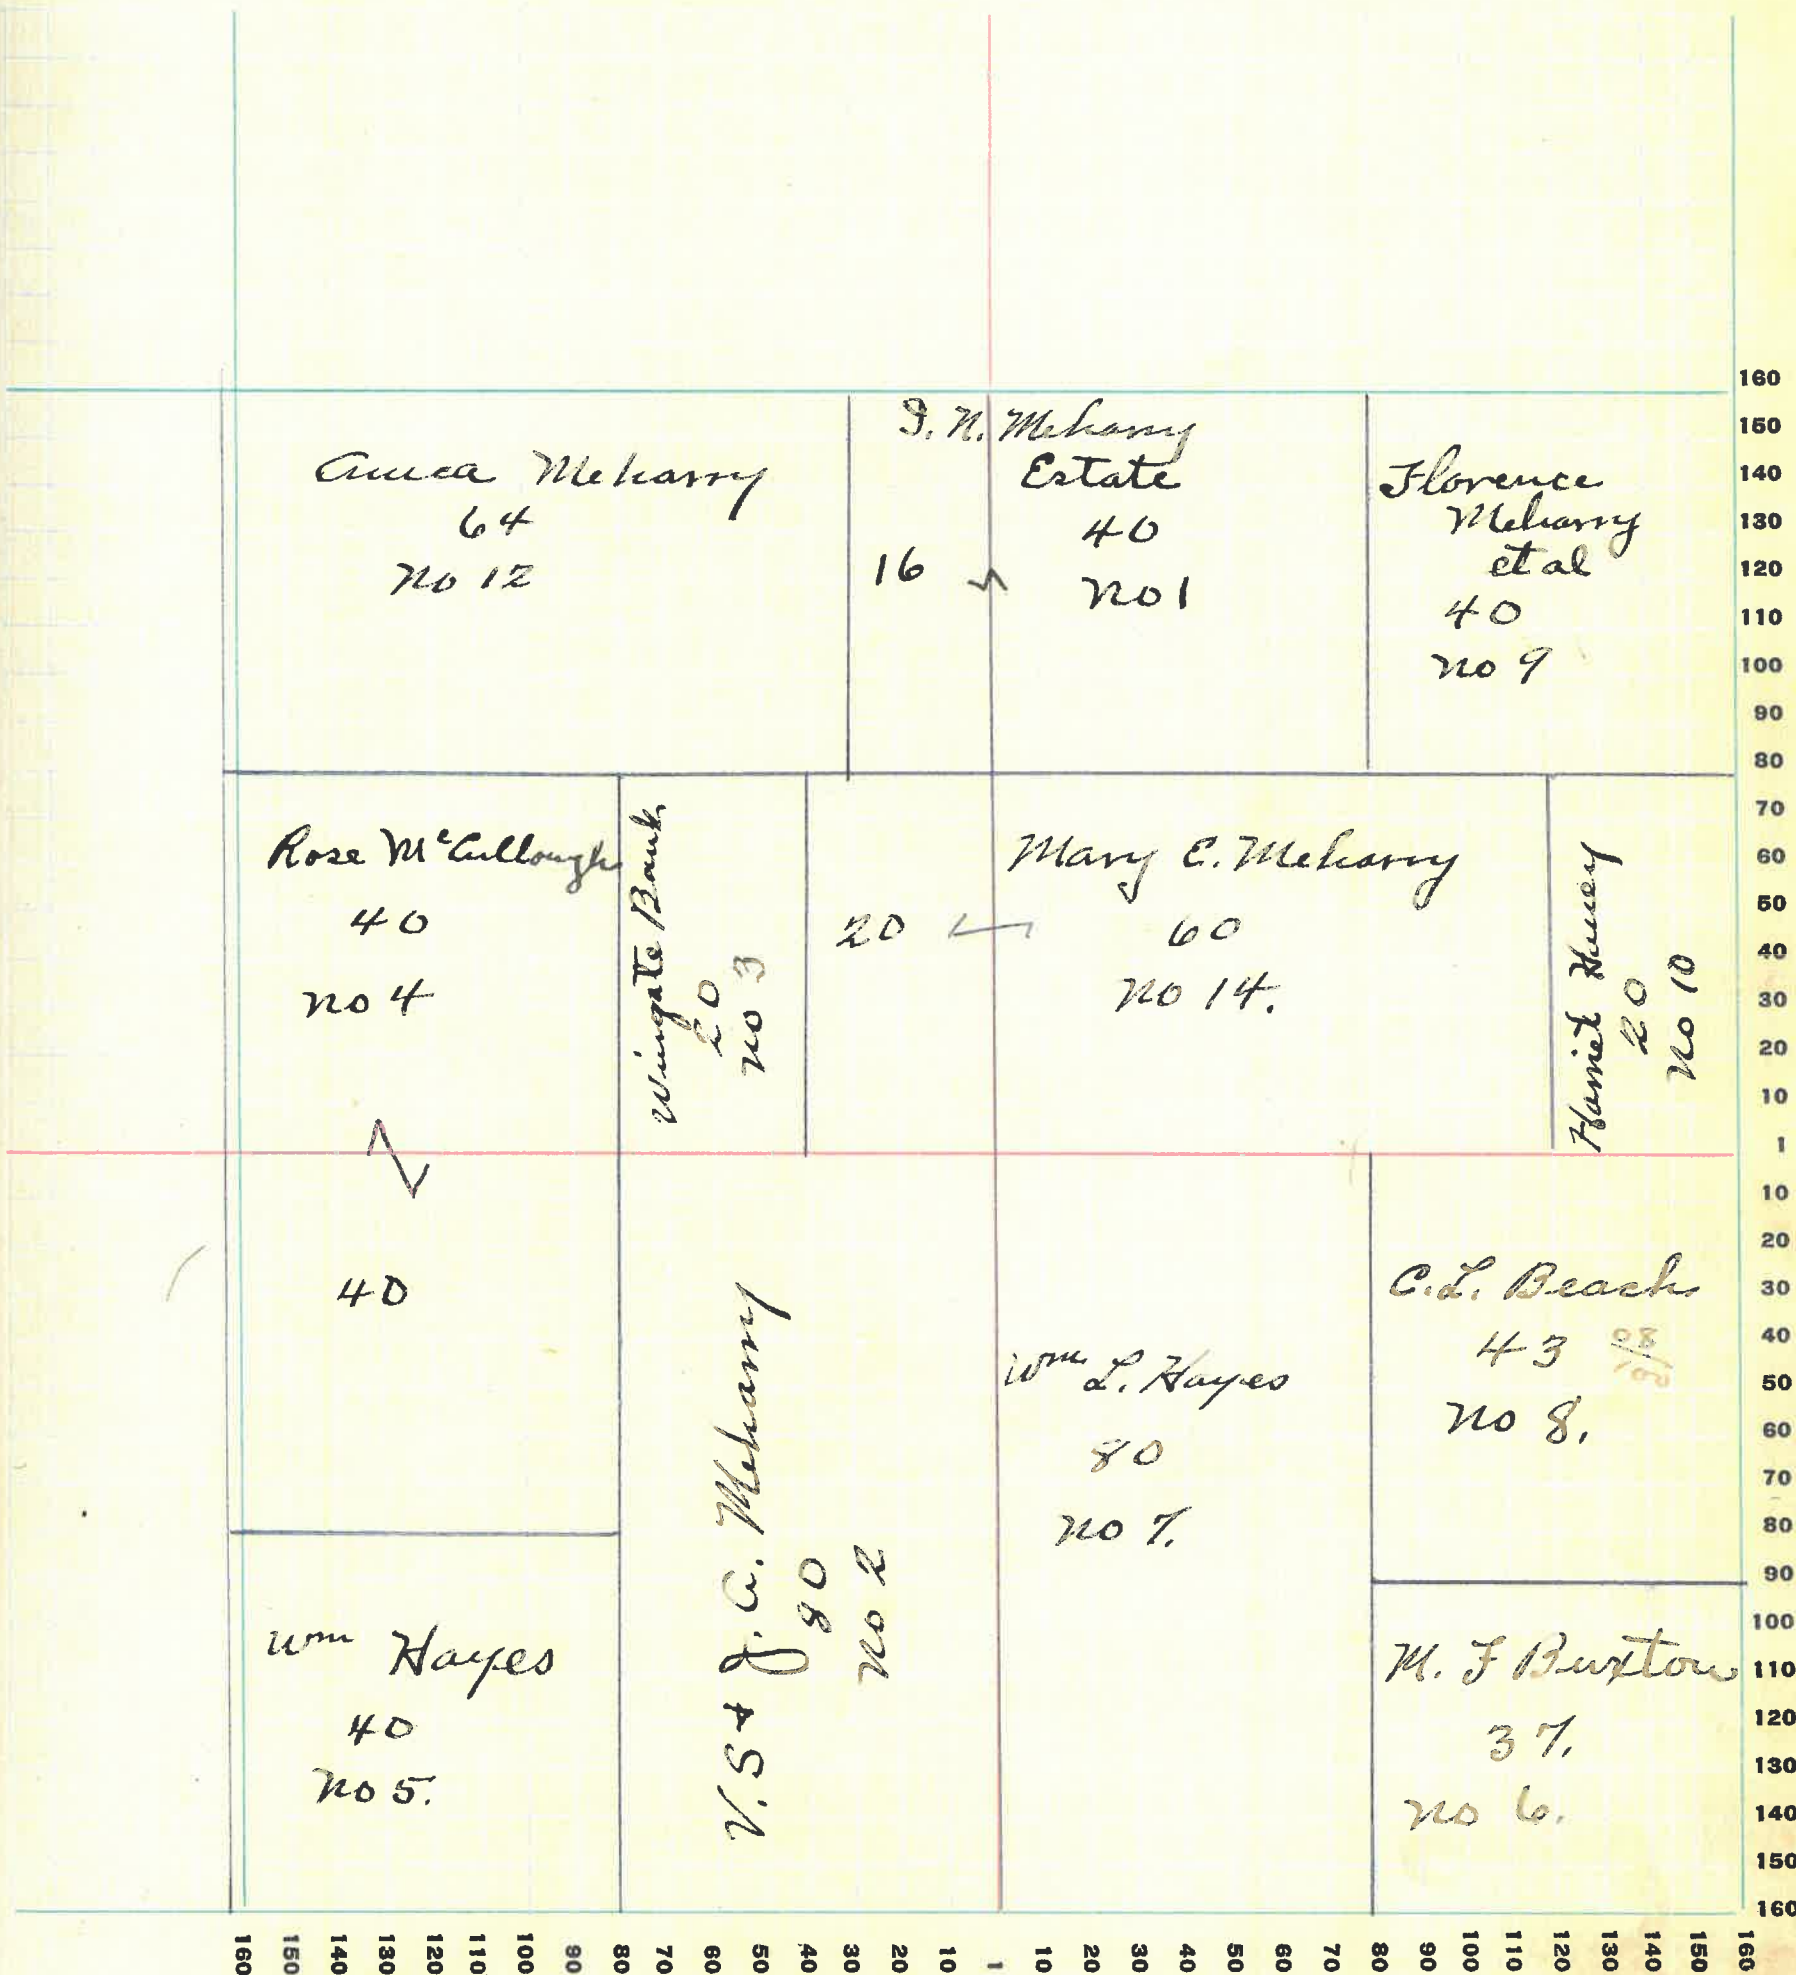 Meharry
64
No 12
I. N. Meharry
Estate
40
No 1
16
Florence
Meharry
et al
40
No 9
Rose McCullough
40
No 4
40
Wingate Bank
20
No 3
20
Mary E. Meharry
60
No 14.
Harriet
20
No 10
V. S & J. A. Meharry
80
No 2
Wm L. Hayes
80
No 7.
C. L. Beach
43
No 8.
Wm Hayes
40
No 5.
M. F Buxton
37.
No 6.
160
150
140
130
120
110
100
90
80
70
60
50
40
30
20
10
1
10
20
30
40
50
60
70
80
90
100
110
120
130
140
150
160
160
150
140
130
120
110
100
90
80
70
60
50
40
30
20
10
1
10
20
30
40
50
60
70
80
90
100
110
120
130
140
150
160